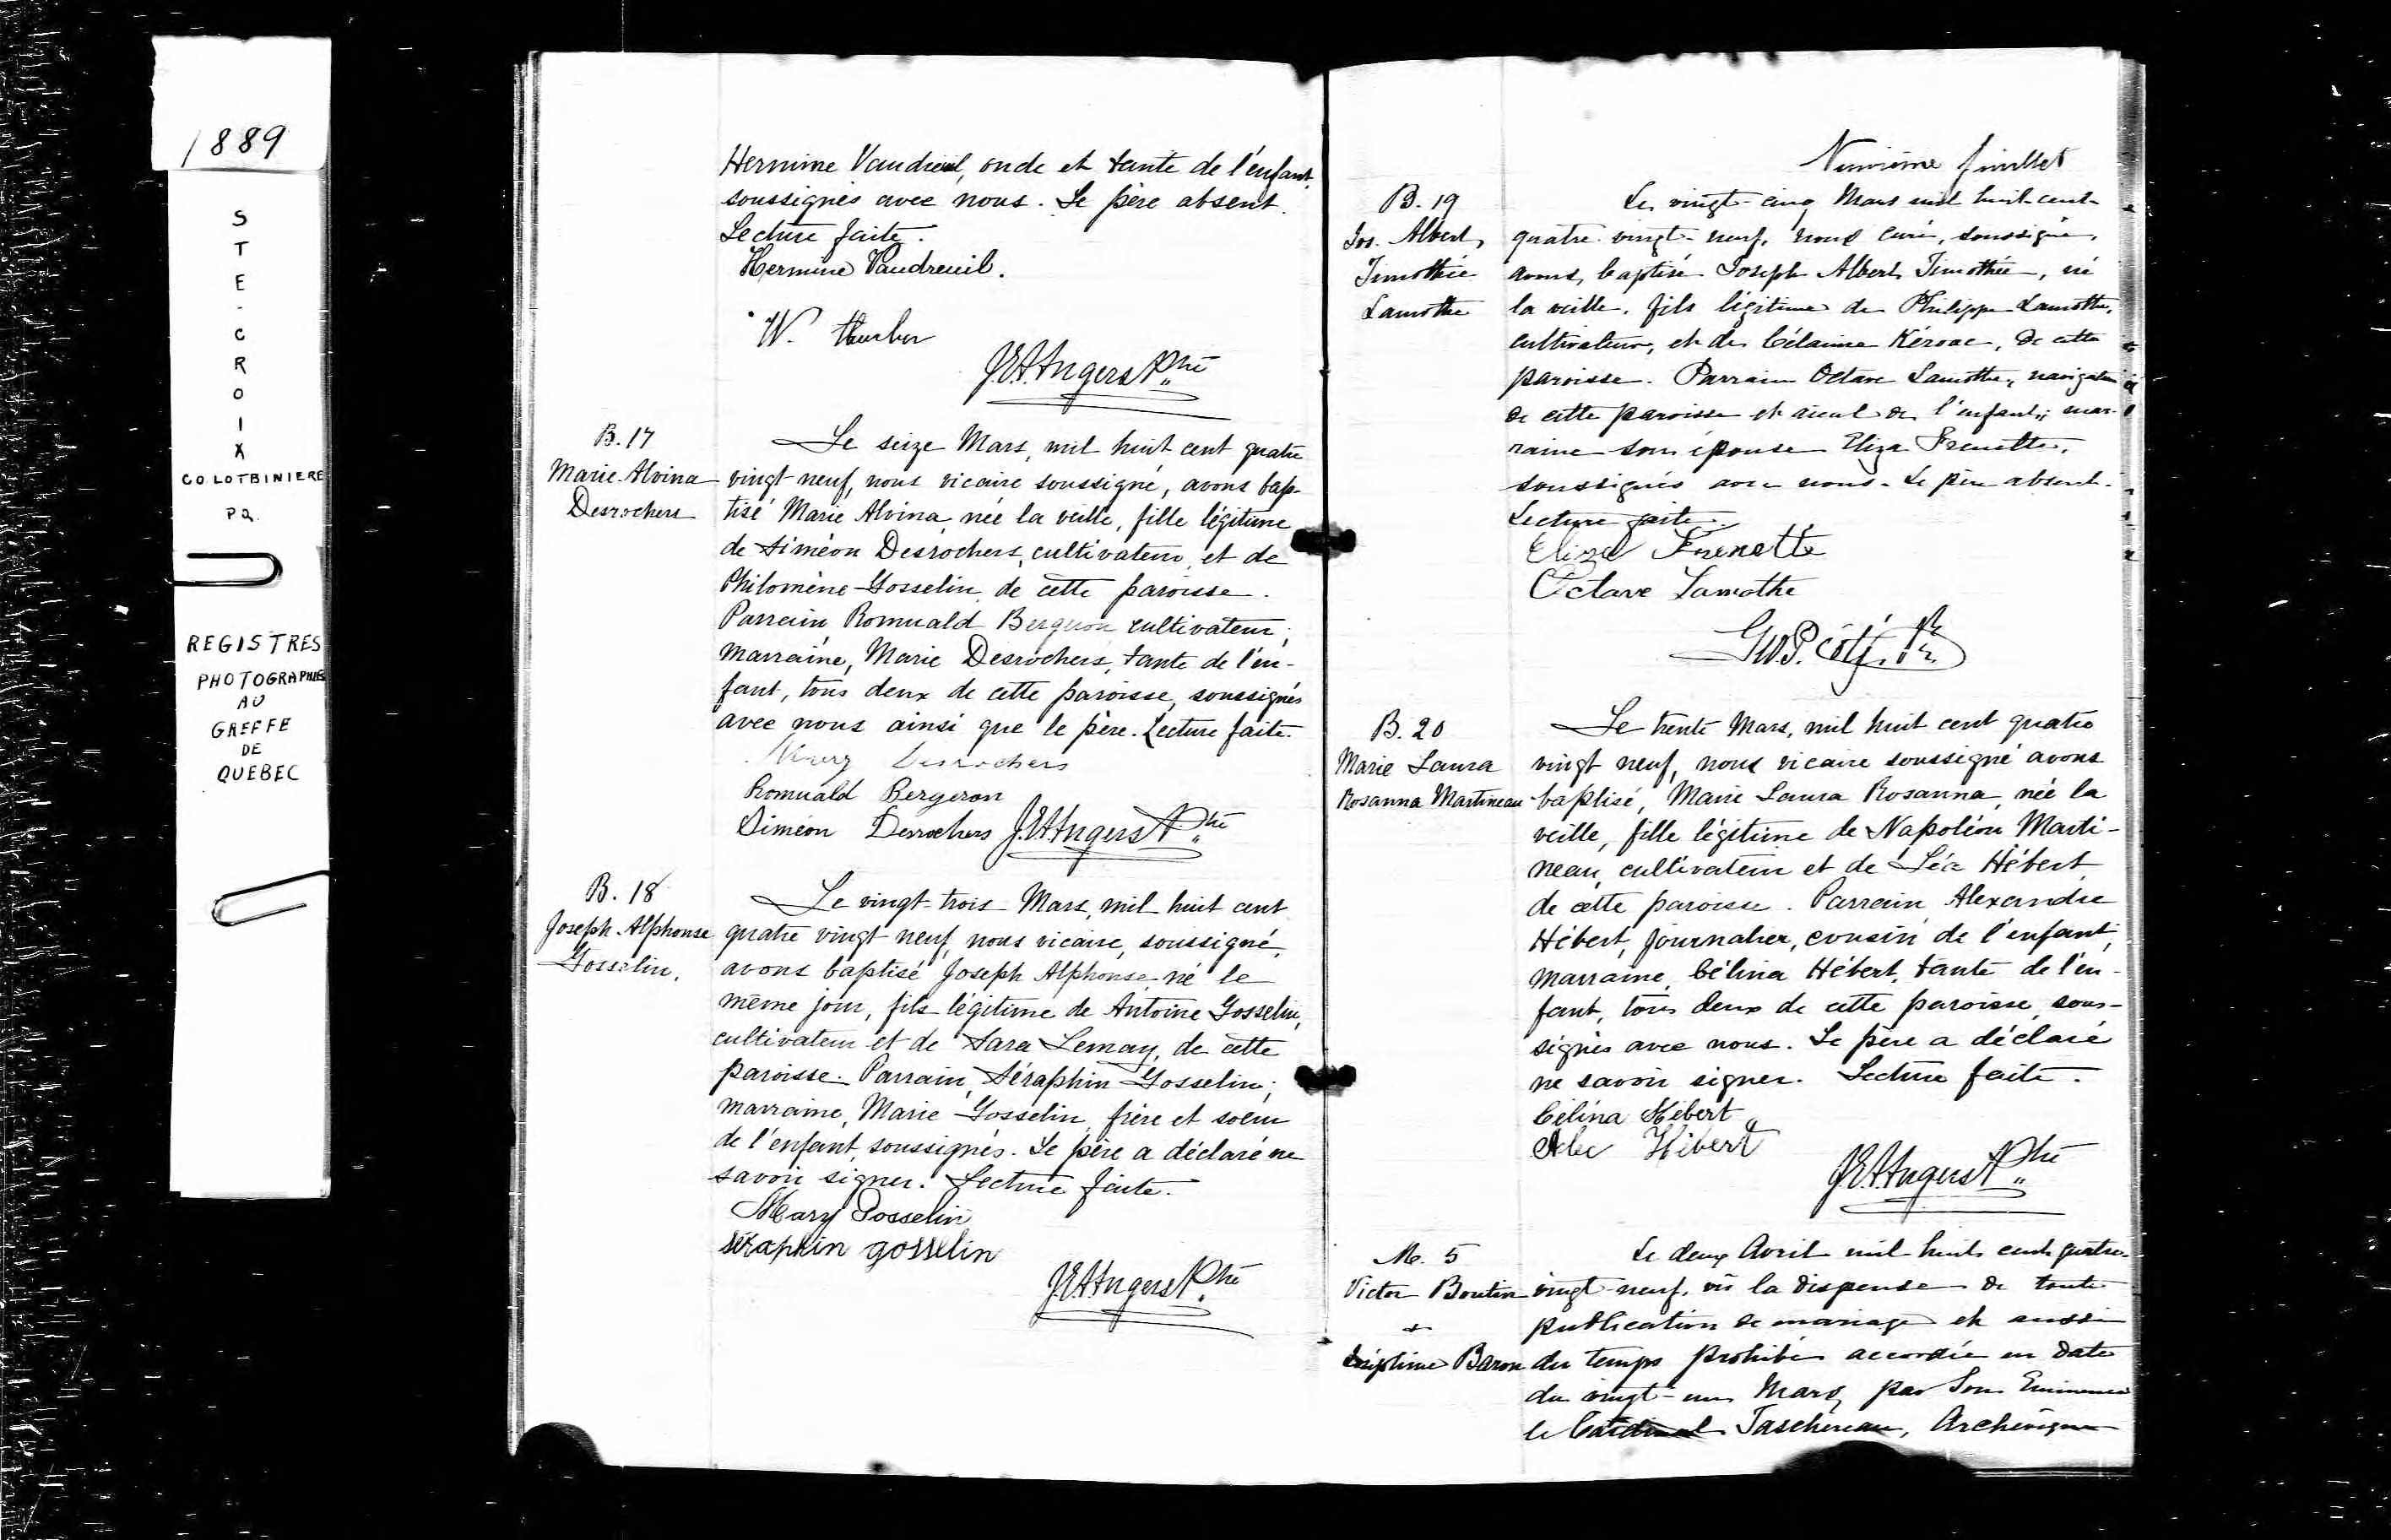 1889
S
T
E
-
C
R
O
I
X
CO. LOTBINIERE
P Q.
REGISTRES
PHOTOGRAPHIES
AU
GREFFE
DE
QUEBEC
Hermine Vaudreuil, oncle et tante de l'enfant,
soussignés avec nous. Le père absent.
Lecture faite.
Hermine Vaudreuil.
W.
J.E.A. Angers Ptre
B. 17
Marie-Alvina
Desrochers
Le seize Mars, mil huit cent quatre
vingt neuf, nous vicaire soussigné, avons bap-
tisé Marie Alvina, née la veille, fille légitime
de Siméon Desrochers, cultivateur, et de
Philomène Gosselin, de cette paroisse.
Parrain Romuald Bergeron cultivateur;
marraine, Marie Desrochers, tante de l'en-
fant, tous deux de cette paroisse, soussignés
avec nous ainsi que le père. Lecture faite.
Mary Desrochers
Romuald Bergeron
Siméon Desrochers J.E.A. Angers Ptre
B. 18
Joseph-Alphonse
Gosselin.
Le vingt-trois Mars, mil huit cent
quatre vingt neuf, nous vicaire, soussigné,
avons baptisé Joseph Alphonse, né le
même jour, fils légitime de Antoine Gosselin,
cultivateur et de Sara Lemay, de cette
paroisse. Parrain, Séraphin Gosselin;
marraine, Marie Gosselin, frère et soeur
de l'enfant, soussignés. Le père a déclaré ne
savoir signer. Lecture faite.
Mary Gosselin
séraphin gosselin
J.E.A. Angers Ptre
Neuvième feuillet
B. 19
Jos. Albert
Timothée
Lamothe
Le vingt-cinq Mars mil huit-cent-
quatre-vingt-neuf, nous curé, soussigné,
avons baptisé Joseph Albert Timothée, né
la veille, fils légitime de Philippe Lamothe,
cultivateur, et de Célanire Kéroac, de cette
paroisse. Parrain Octave Lamothe, navigateur
de cette paroisse et aieul de l'enfant; mar-
raine son épouse Eliza Frenette,
soussignés avec nous. Le père absent.
Lecture faite.
Eliza Frenette
Octave Lamothe
Geo P. Côté, Ptre
B. 20
Marie Laura
Rosanna Martineau
Le trente Mars, mil huit cent quatre
vingt neuf, nous vicaire soussigné avons
baptisé, Marie Laura Rosanna, née la
veille, fille légitime de Napoléon Marti-
neau, cultivateur et de Léa Hébert
de cette paroisse. Parrain Alexandre
Hébert, journalier, cousin de l'enfant;
marraine, Célina Hébert, tante de l'en-
fant, tous deux de cette paroisse, sous-
signés avec nous. Le père a déclaré
ne savoir signer. Lecture faite.
Célina Hébert
Alec Hébert
J.E.A. Angers Ptre
M. 5
Victor Boutin
+
Joséphine Baron
Le deux Avril mil huit cent quatre-
vingt-neuf, vû la dispense de toute
publication de mariage et aussi
du temps prohibé accordée en date
du vingt-un Mars, par Son Eminence
le Cardinal Taschereau, Archevêque